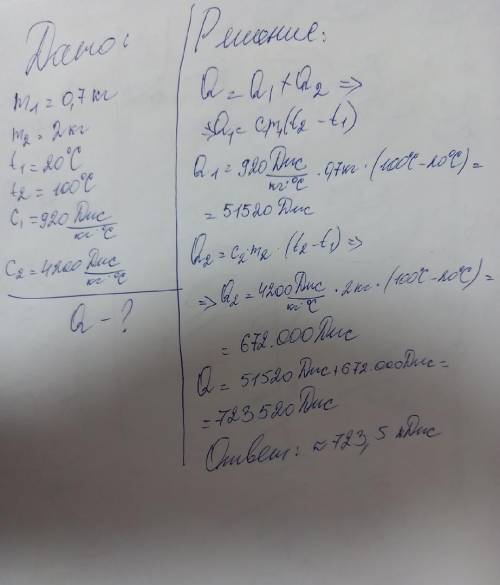 Дано:
m₁ = 0,7 кг
m₂ = 2 кг
t₁ = 20°C
t₂ = 100°C
c₁ = 920 Дж/кг·°C
c₂ = 4200 Дж/кг·°C
Q - ?
Решение:
Q = Q₁ + Q₂ =>
=> Q₁ = c₁m₁(t₂ - t₁)
Q₁ = 920 Дж/кг·°C · 0,7кг · (100°C - 20°C) =
= 51520 Дж
Q₂ = c₂ · m₂ · (t₂ - t₁) =>
=> Q₂ = 4200 Дж/кг·°C · 2кг · (100°C - 20°C) =
= 672.000 Дж
Q = 51520 Дж + 672.000 Дж =
= 723520 Дж
Ответ: ≈ 723,5 кДж